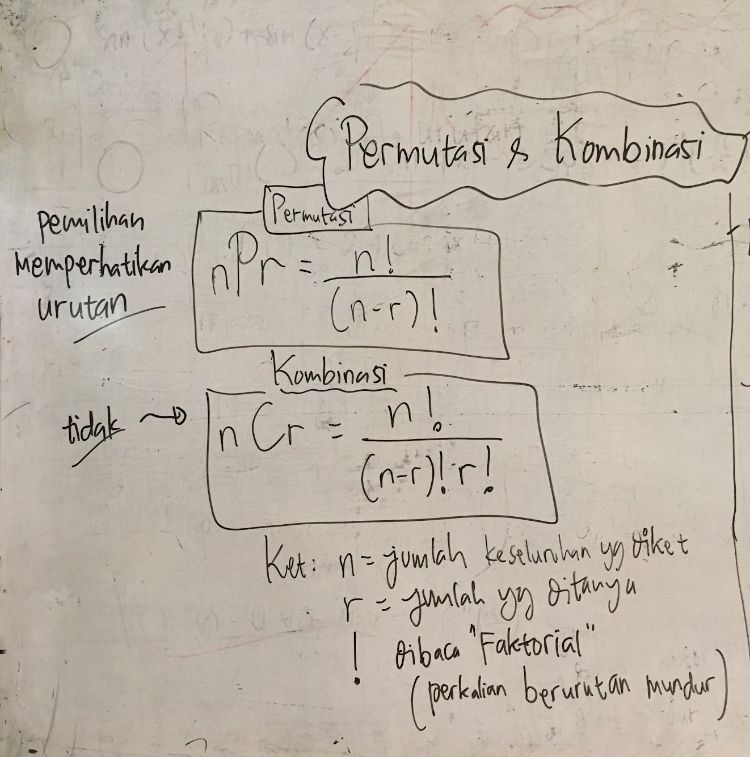 Permutasi & Kombinasi
pemilihan
memperhatikan
urutan
Permutasi
nPr = n!
(n-r)!
Kombinasi
tidak →
nCr = n!
(n-r)! r!
Ket: n = jumlah keseluruhan yg diket
r = jumlah yg ditanya
! dibaca "Faktorial"
(perkalian berurutan mundur)